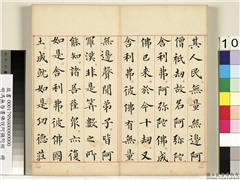 其人民無量無邊阿
僧祇劫故名阿彌陀
舍利弗阿彌陀佛成
佛已來於今十劫又
舍利弗彼佛有無量
無邊聲聞弟子皆阿
羅漢非是算數之所
能知諸菩薩眾亦復
如是舍利弗彼佛國
土成就如是功德莊